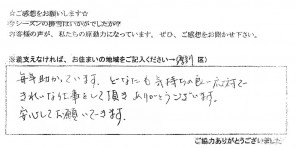 ☆ご感想をお願いします☆
今シーズンの担当はいかがでしたか？
お客様の声が、私たちの原動力になっています。ぜひ、ご感想をお聞かせ下さい。
※差支えなければ、お住まいの地域をご記入ください→( 区)
毎年助かっています。どなたも気持ちの良い応対で
きれいな仕事をして頂きありがとうございます。
安心してお願いできます。
ご協力ありがとうございました